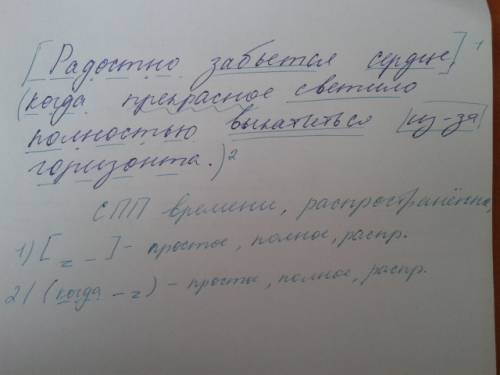 [Радостно забьется сердце,]¹
(когда прекрасное светило
полностью выкатиться из-за
горизонта.)²
СПП времени, распространённое,
1) [= –] - простое, полное, распр.
2) (когда – =) - простое, полное, распр.